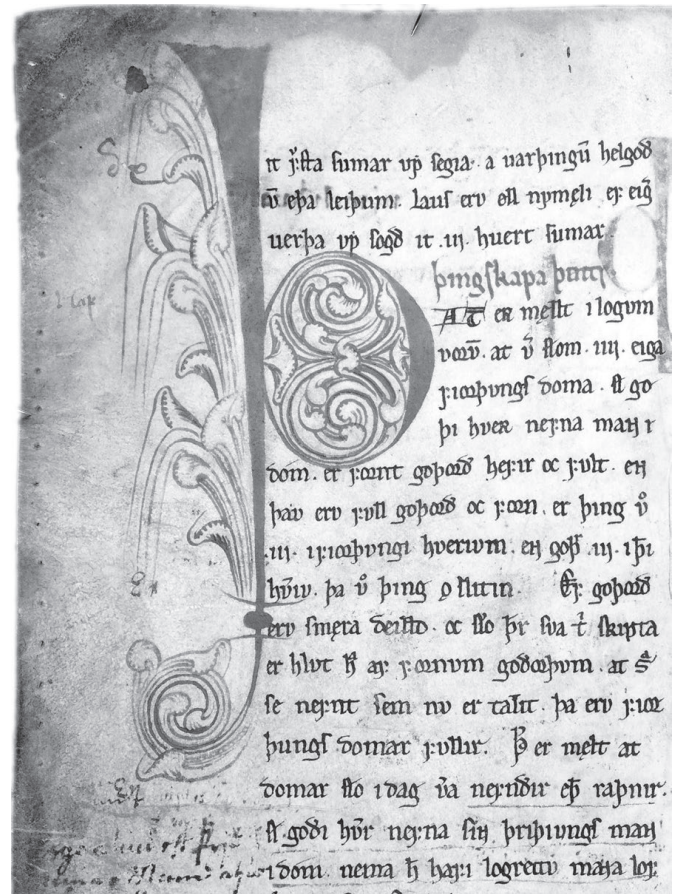 it fẏrsta sumar vp segia. a uarþingū helgoð
v̄ eþa leiþum. Laus erv oll nymęli ef eig̃
uerþa vp sogð it .iij. huert sumar.
þingskapa þattr
ÞAT er męllt i logvm
vorū. at v̄ skom .iiii. eiga
fiorþvngs doma. sk̄ go
þi hver nefna mann i
dom. er fornt goþorð hefir oc fvllt. en
þav erv fvll goþorð oc forn. er þing v͛
.iii. i fiorþvngi hverivm. en goþ̄ .iii. i þi
hv̄iv. þa v͛ þing oslitin. Ef goþorð
erv smęra deilld. oc sk̄o þr sva t̄ skipta
er hlvt h̄ af fornvm goðorþvm. at s̄
se nefnt sem nv er talit. þa erv fior
þungs domar fvllir. Þ̄ er męlt at
domar sk̄o i dag v̄a nefndir eþ̄ raþnir.
sk̄ goði hv̄r nefna sin̄ þriþivngs man̄
i dom. nema h̄ hafi logrettv man̄a lof